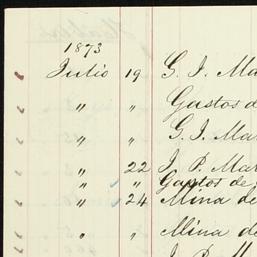 1873
Julio 19 G. I. Ma
" " Gastos d
" " G. I. Mar
" 22 J. P. Mar
" " Gastos de
" 24 Mina de
" " Mina de
J. P. M